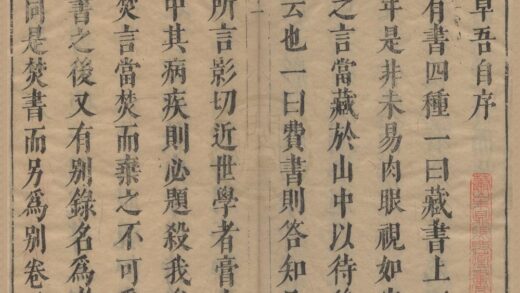 卓吾自序
有書四種一曰藏書上
年是非未易肉眼視
之言當藏於山中以待
云也一曰焚書則答知
所言頗切近世學者膏
中其痼疾則必欲殺我
焚言當焚而棄之不可
書之後又有別錄名爲
同是焚書而另爲別卷